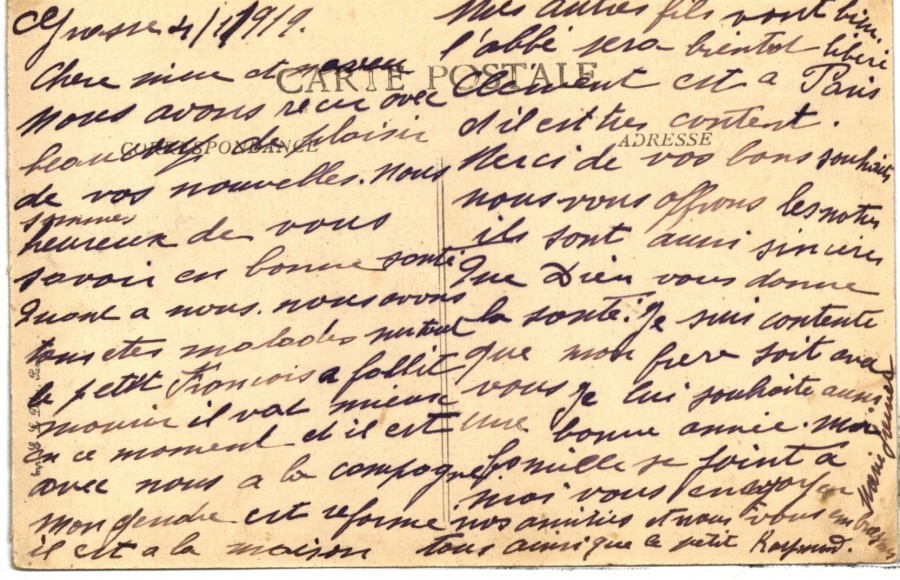 Grasse 4/1/1919.
Chere niece et neveu
Nous avons recu avec
beaucoup de plaisir
de vos nouvelles. Nous
sommes
heureux de vous
savoir en bonne santé
Quant a nous. nous avons
tous etes malades surtout
le petit Francois a fallit
mourir il vat mieux
en ce moment et il est
avec nous a la campagne
Mon gendre est reforme
il est a la maison
Mes autres fils vont bien.
l'abbé sera bientot libéré
Clement est a Paris
et il est tres content.
Merci de vos bons souhaits
nous vous offrons les notres
ils sont aussi sinceres
Que Dieu vous donne
la santé. Je suis contente
que mon frere soit avec
vous je lui souhaite aussi
une bonne année. Ma
famille se joint a
moi vous envoyer
nos amities et nous vous embrassons
tous ainsi que le petit
Marie
CARTE POSTALE
CORRESPONDANCE
ADRESSE